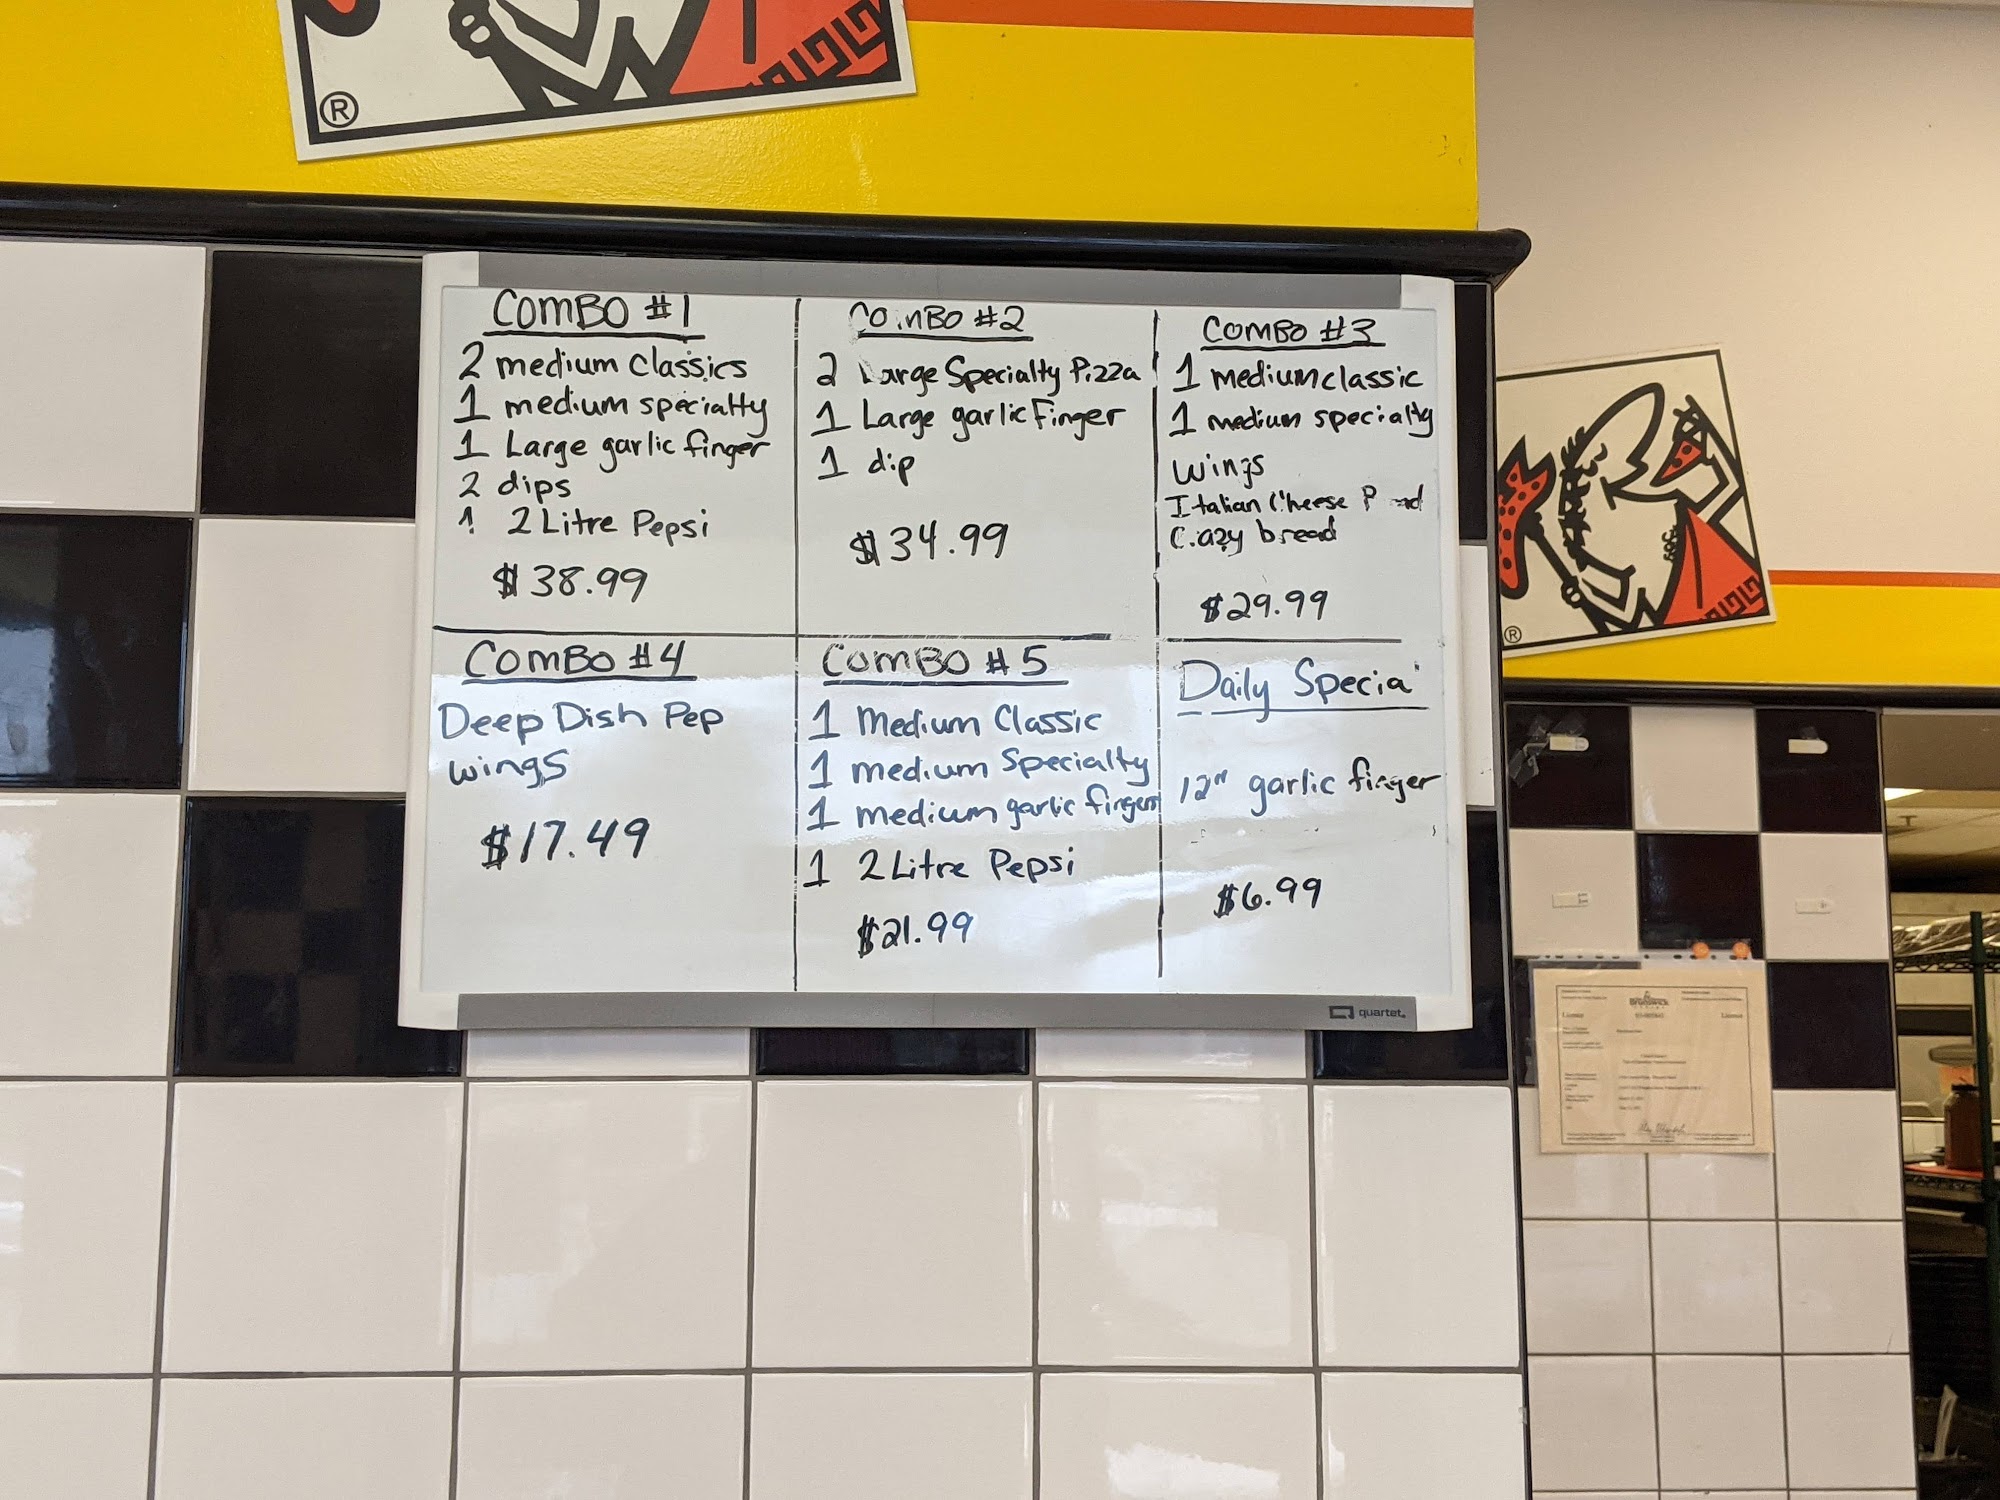 ®
COMBO #1
2 medium Classics
1 medium specialty
1 Large garlic finger
2 dips
1 2 Litre Pepsi
$38.99
COMBO #2
2 Large Specialty Pizza
1 Large garlic Finger
1 dip
$34.99
COMBO #3
1 medium classic
1 medium specialty
wings
Italian Cheese
Crazy bread
$29.99
COMBO #4
Deep Dish Pep
wings
$17.49
COMBO #5
1 Medium Classic
1 medium Specialty
1 medium garlic fingers
1 2 Litre Pepsi
$21.99
Daily Special
12" garlic finger
$6.99
quartet
®
Brunswick
License